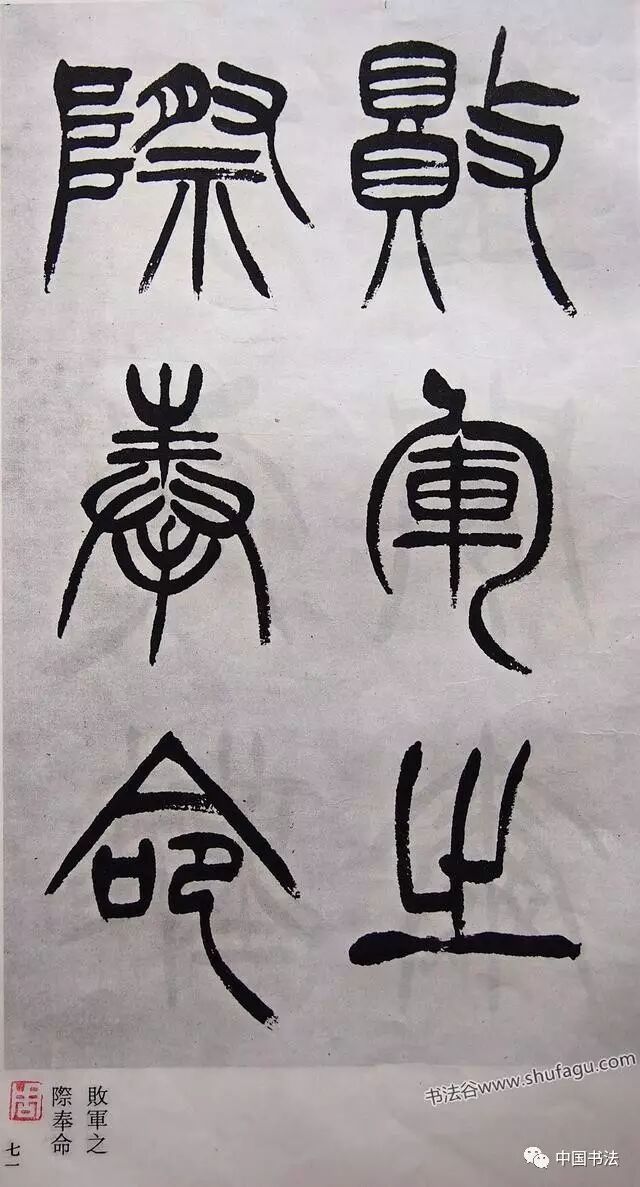 敗軍之
際奉命
敗軍之
際奉命
七一
书法谷www.shufagu.com
中国书法